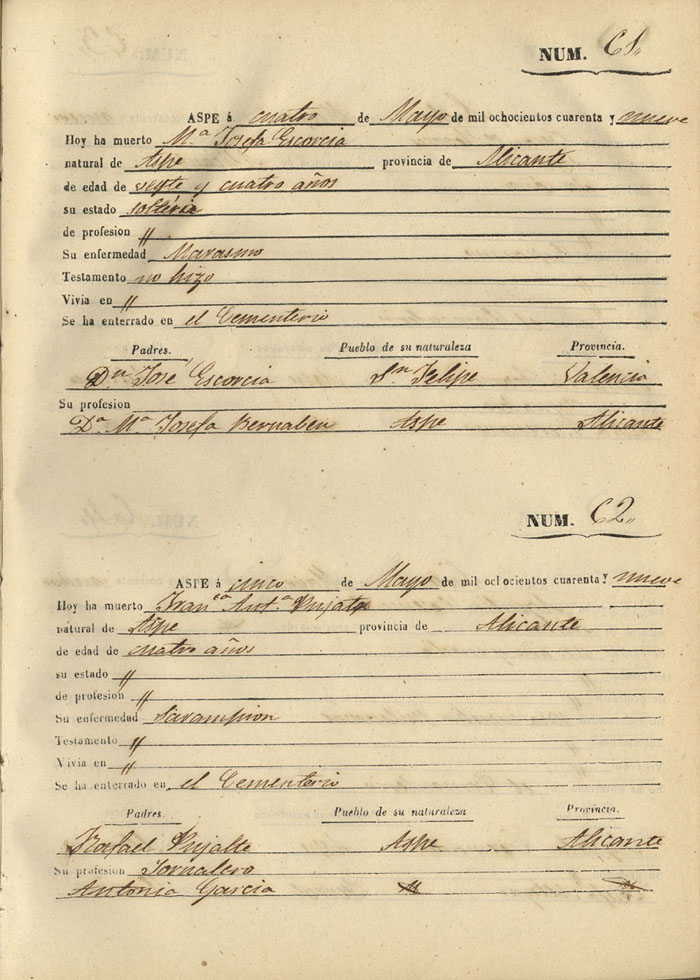 NUM. 61,,
ASPE á cuatro de Mayo de mil ochocientos cuarenta y nueve
Hoy ha muerto Mª Josefa Escorcia
natural de Aspe provincia de Alicante
de edad de veynte y cuatro años
su estado
de profesion "
Su enfermedad Marasmo
Testamento no hizo
Vivia en "
Se ha enterrado en el Cementerio
Padres. Pueblo de su naturaleza Provincia.
Dn José Escorcia Sn Felipe Valencia
Su profesion
Dª Mª Josefa Bernabeu Aspe Alicante
NUM. 62,,
ASPE á cinco de Mayo de mil ochocientos cuarenta y nueve
Hoy ha muerto Franca Antª Pujalte
natural de Aspe provincia de Alicante
de edad de cuatro años
su estado "
de profesion "
Su enfermedad Sarampion
Testamento "
Vivia en "
Se ha enterrado en el Cementerio
Padres. Pueblo de su naturaleza Provincia.
Rafael Pujalte Aspe Alicante
Su profesion Jornalero
Antonia Garcia